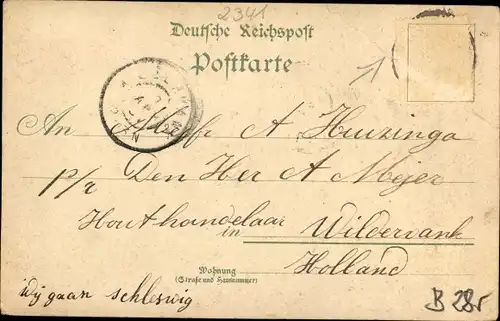 2341
Deutsche Reichspost
Postkarte
An A Huizinga
p/r Den Her A Meijer
Houthandelaar
in Wildervank
Holland
Wohnung
(Straße und Hausnummer)
Wij gaan schleswig
B 28r